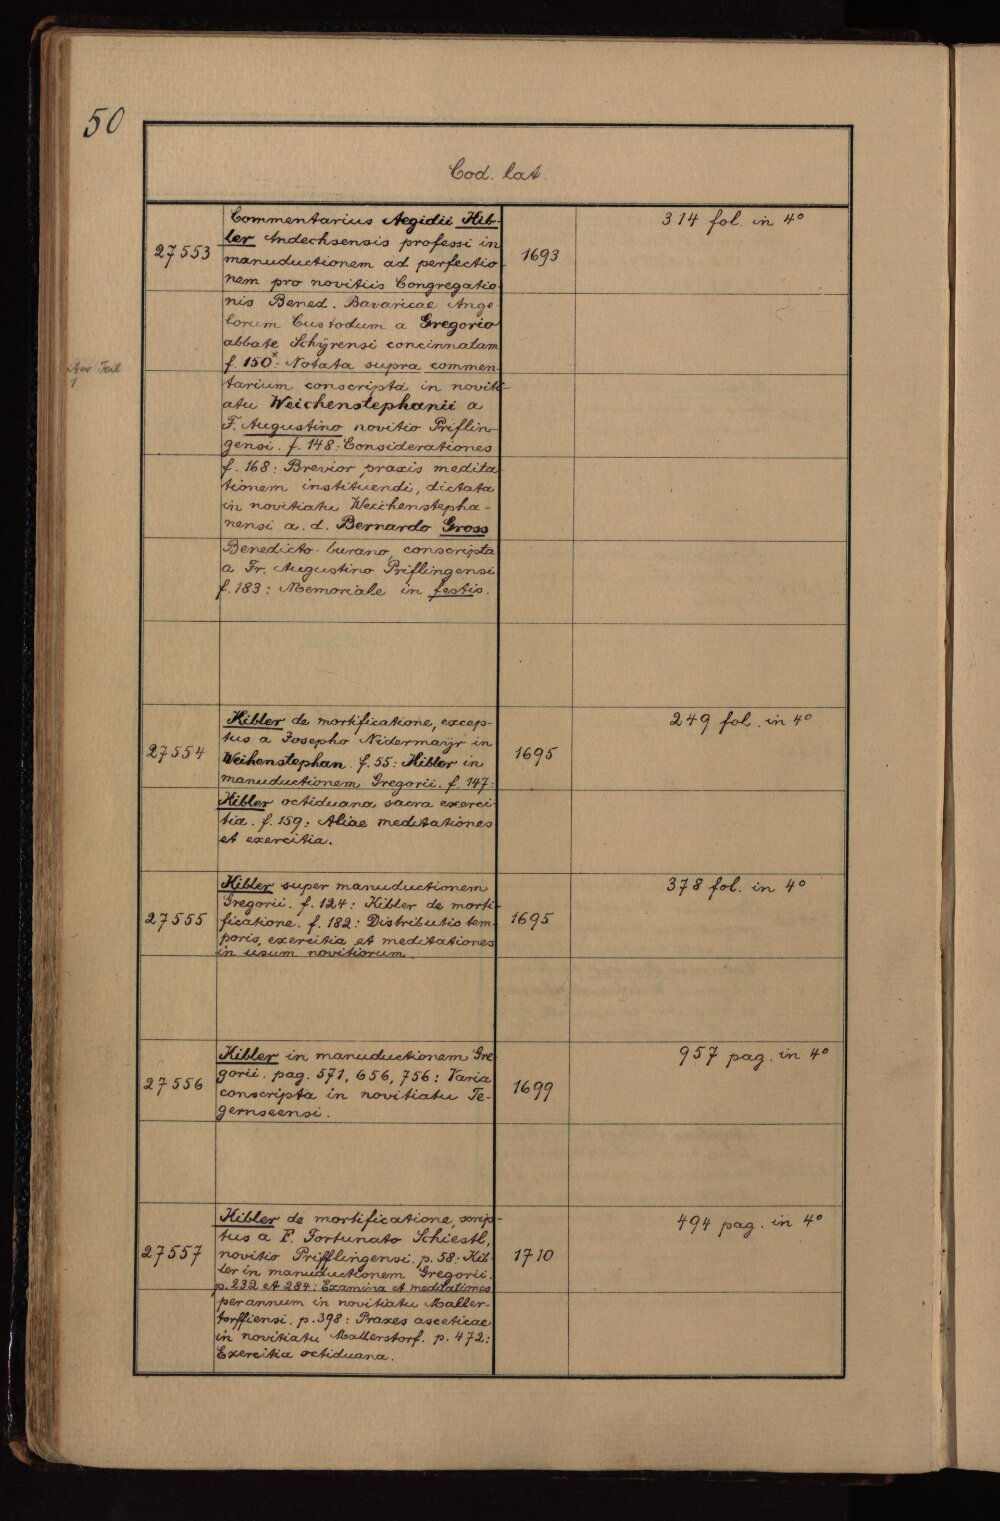 50
Cod. lat.
27553
Commentarius Aegidii Kib-
ler Andechsensis professi in
manuductionem ad perfectio-
nem pro novitiis Congregatio
nis Bened. Bavaricae Ange
lorum Custodum a Gregorio
abbate Schÿrensi concinnatam
f. 150*: Notata supra commen
tarium conscripta in noviti
atu Weichenstephanii a
F. Augustino novitio Priflin-
gensi. f. 148: Considerationes
f. 168: Brevior praxis medita
tionem instituendi, dictata
in novitiatu Weichenstepha-
nensi a. d. Bernardo Gross
Benedicto-burano, conscripta
a Fr. Augustino Priflingensi
f. 183: Memoriale in festis.
1693
314 fol. in 4°
27554
Kibler de mortificatione, excep-
tus a Josepho Nidermaÿr in
Weihenstephan f. 55: Kibler in
manuductionem Gregorii. f. 147:
Kibler octiduana sacra exerci
tia. f. 159: Aliae meditationes
et exercitia.
1695
249 fol. in 4°
27555
Kibler super manuductionem
Gregorii. f. 124: Kibler de morti-
ficatione. f. 182: Distributio tem-
poris, exercitia et meditationes
in usum novitiorum.
1695
378 fol. in 4°
27556
Kibler in manuductionem Gre
gorii. pag. 571, 656, 756: Varia
conscripta in novitiatu Te-
gernseensi.
1699
957 pag. in 4°
27557
Kibler de mortificatione, scrip-
tus a F. Fortunato Schiestl,
novitio Prifflingensi. p. 58: Kib-
ler in manuductionem Gregorii.
p. 232 et 284: Examina et meditationes
per annum in novitiatu Maller-
torffiensi. p. 398: Praxes asceticae
in novitiatu Mallerstorf. p. 472:
Exercitia octiduana.
1710
494 pag. in 4°